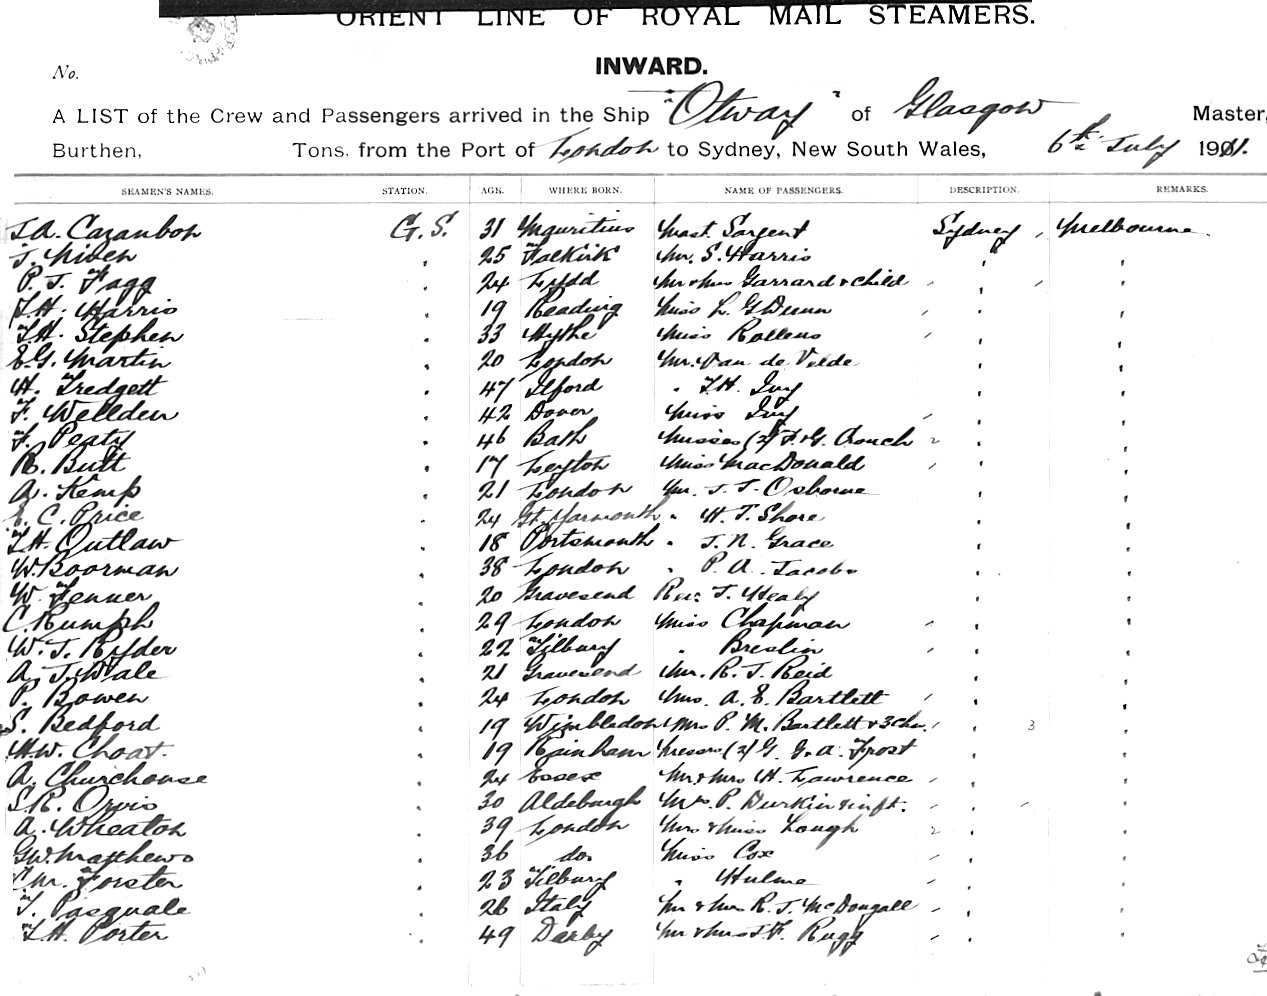 ORIENT LINE OF ROYAL MAIL STEAMERS.
INWARD.
No.
A LIST of the Crew and Passengers arrived in the Ship "Otway" of Glasgow Master,
Burthen, Tons, from the Port of London to Sydney, New South Wales, 6th July 1911.
SEAMEN'S NAMES. STATION. AGE. WHERE BORN. NAME OF PASSENGERS. DESCRIPTION. REMARKS.
G.S. 31 Mauritius Mast. Sargent Sydney Melbourne
25 Falkirk Mr. S. Harris
P. J. Fagg 24 Lydd Mr & Mrs Garrard & child
Harris 19 Reading Miss L. G Dunn
Stephen 33 Hythe Miss Rollens
E.G. Martin 20 London Mr. Van de Velde
H. Tredgett 47 Ilford " Ivy
F. Wellden 42 Dover Miss Ivy
F. Peaty 46 Bath Misses (2) F. & G. Crouch 2
R. Butt 17 Leyton Miss MacDonald
A. Kemp 21 London Mr. Osborne
C. Price 24 Gt. Yarmouth " H. T. Shore
Outlaw 18 Portsmouth " J. N. Grace
W. Boorman 38 London " P. A. Jacobs
W. Fenner 20 Gravesend Rev. J. Healy
C Rumph 29 London Miss Chapman
W. J. Ryder 22 Tilbury " Breslin
A. J. Wale 21 Gravesend Mr. R. J. Reid
P. Bowen 24 London Mrs. A. E. Bartlett
S. Bedford 19 Wimbledon Mrs P. M. Bartlett & 3 chn. 3
H.W. Choat. 19 Rainham Messrs (2) G. & A. Frost
A. Churchouse 24 Essex Mr & Mrs H. Lawrence
S.R. Orvis 30 Aldeburgh Mrs. P. Durkin & inft.
A. Wheaton 39 London Mrs & Miss Lough 2
G.W. Matthews 36 do. Miss Cox
Forster 23 Tilbury " Hulme
Pasquale 26 Italy Mr & Mrs R. J. McDougall
Porter 49 Derby Mr & Mrs Rugg